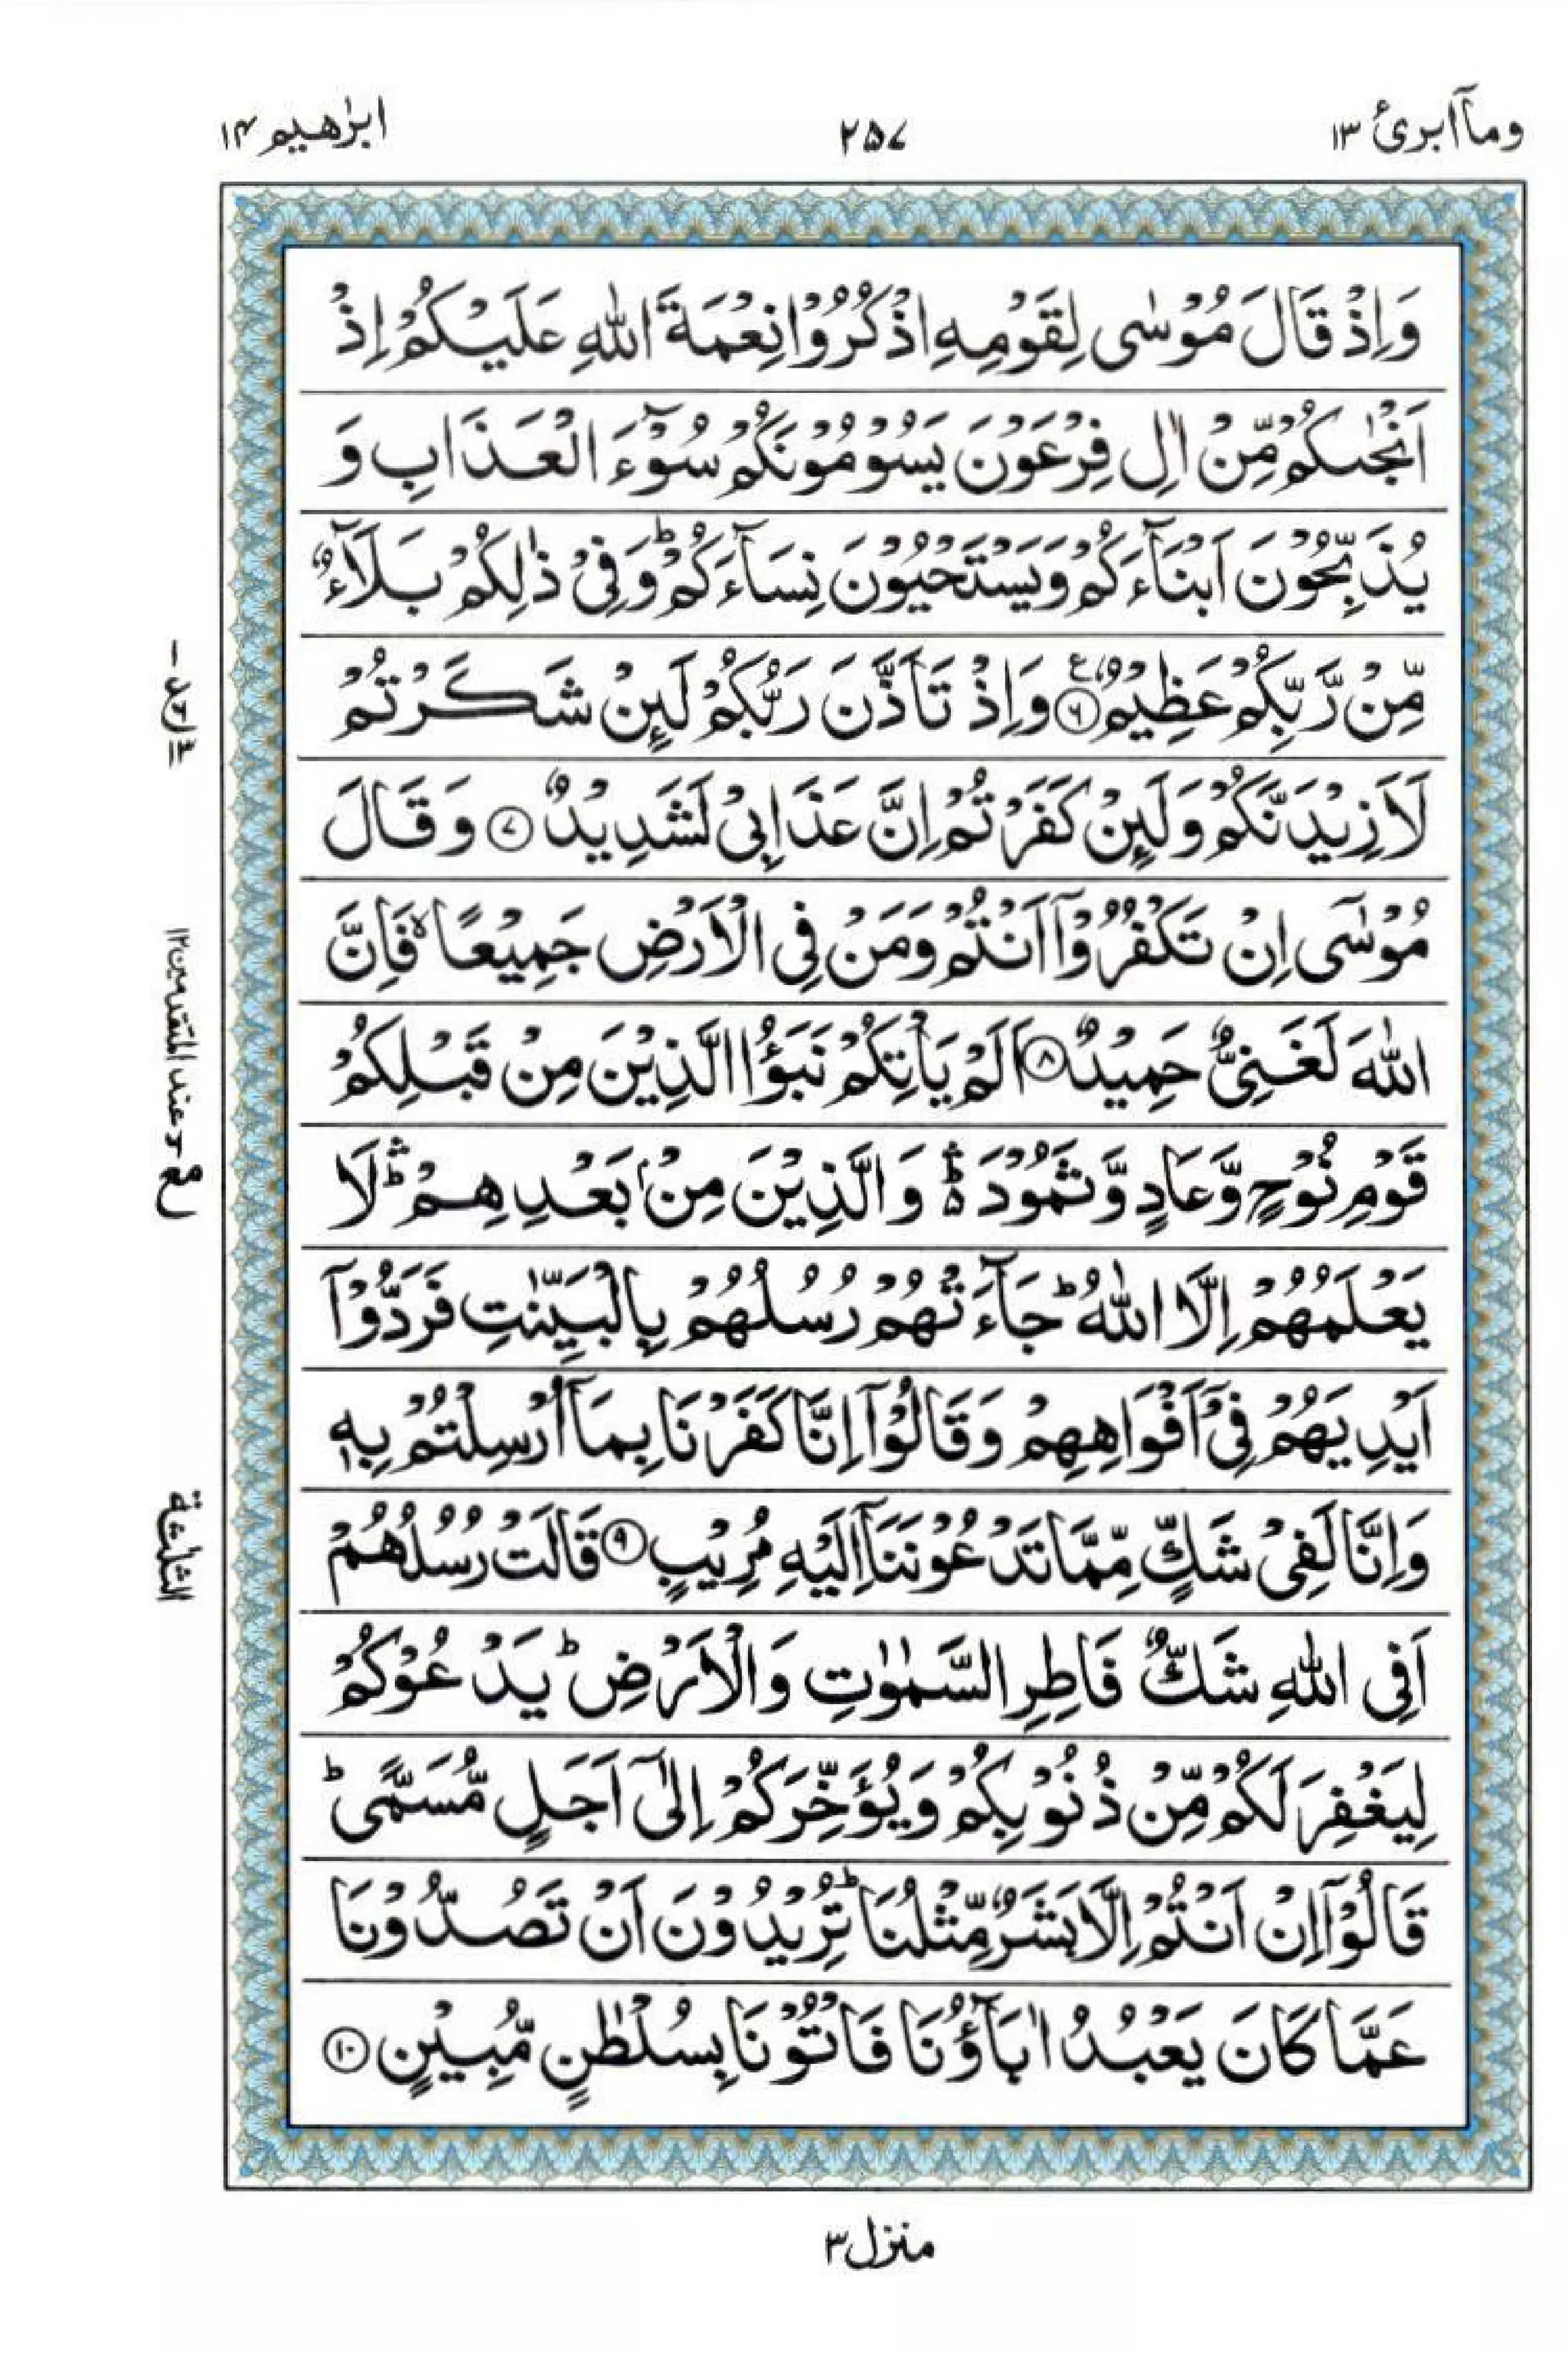 وماآ ابرئ ۱۳
۲۵۷
ابرٰهیم ۱۴
وَاِذْ قَالَ مُوْسٰی لِقَوْمِهِ اذْكُرُوْا نِعْمَةَ اللّٰهِ عَلَیْكُمْ اِذْ
اَنْجٰىكُمْ مِّنْ اٰلِ فِرْعَوْنَ یَسُوْمُوْنَكُمْ سُوْٓءَ الْعَذَابِ وَ
یُذَبِّحُوْنَ اَبْنَآءَكُمْ وَیَسْتَحْیُوْنَ نِسَآءَكُمْ ؕ وَفِیْ ذٰلِكُمْ بَلَآءٌ
مِّنْ رَّبِّكُمْ عَظِیْمٌ ۶ ع وَاِذْ تَاَذَّنَ رَبُّكُمْ لَىِٕنْ شَكَرْتُمْ
لَاَزِیْدَنَّكُمْ وَلَىِٕنْ كَفَرْتُمْ اِنَّ عَذَابِیْ لَشَدِیْدٌ ۷ وَقَالَ
مُوْسٰۤی اِنْ تَكْفُرُوْۤا اَنْتُمْ وَمَنْ فِی الْاَرْضِ جَمِیْعًا ۙ فَاِنَّ
اللّٰهَ لَغَنِیٌّ حَمِیْدٌ ۸ اَلَمْ یَاْتِكُمْ نَبَؤُا الَّذِیْنَ مِنْ قَبْلِكُمْ
قَوْمِ نُوْحٍ وَّعَادٍ وَّثَمُوْدَ ۛؕ وَالَّذِیْنَ مِنْۢ بَعْدِهِمْ ۛؕ لَا
یَعْلَمُهُمْ اِلَّا اللّٰهُ ؕ جَآءَتْهُمْ رُسُلُهُمْ بِالْبَیِّنٰتِ فَرَدُّوْۤا
اَیْدِیَهُمْ فِیْۤ اَفْوَاهِهِمْ وَقَالُوْۤا اِنَّا كَفَرْنَا بِمَاۤ اُرْسِلْتُمْ بِهٖ
وَاِنَّا لَفِیْ شَكٍّ مِّمَّا تَدْعُوْنَنَاۤ اِلَیْهِ مُرِیْبٍ ۹ قَالَتْ رُسُلُهُمْ
اَفِی اللّٰهِ شَكٌّ فَاطِرِ السَّمٰوٰتِ وَالْاَرْضِ ؕ یَدْعُوْكُمْ
لِیَغْفِرَ لَكُمْ مِّنْ ذُنُوْبِكُمْ وَیُؤَخِّرَكُمْ اِلٰۤی اَجَلٍ مُّسَمًّی ؕ
قَالُوْۤا اِنْ اَنْتُمْ اِلَّا بَشَرٌ مِّثْلُنَا ؕ تُرِیْدُوْنَ اَنْ تَصُدُّوْنَا
عَمَّا كَانَ یَعْبُدُ اٰبَآؤُنَا فَاْتُوْنَا بِسُلْطٰنٍ مُّبِیْنٍ ۱۰
عند المتقدمین ۱۲
الثلٰثة
منزل ۳